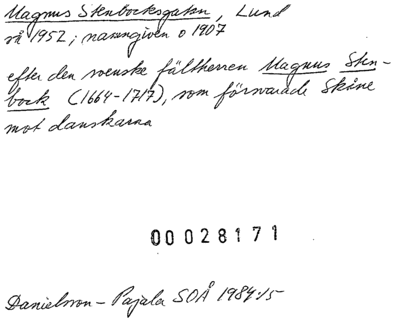 Magnus Stenbocksgatan, Lund
så 1952; namngiven o 1907
efter den svenske fältherren Magnus Sten-
bock (1664-1717), som försvarade Skåne
mot danskarna
00028171
Danielsson - Pajala SOÅ 1984:15